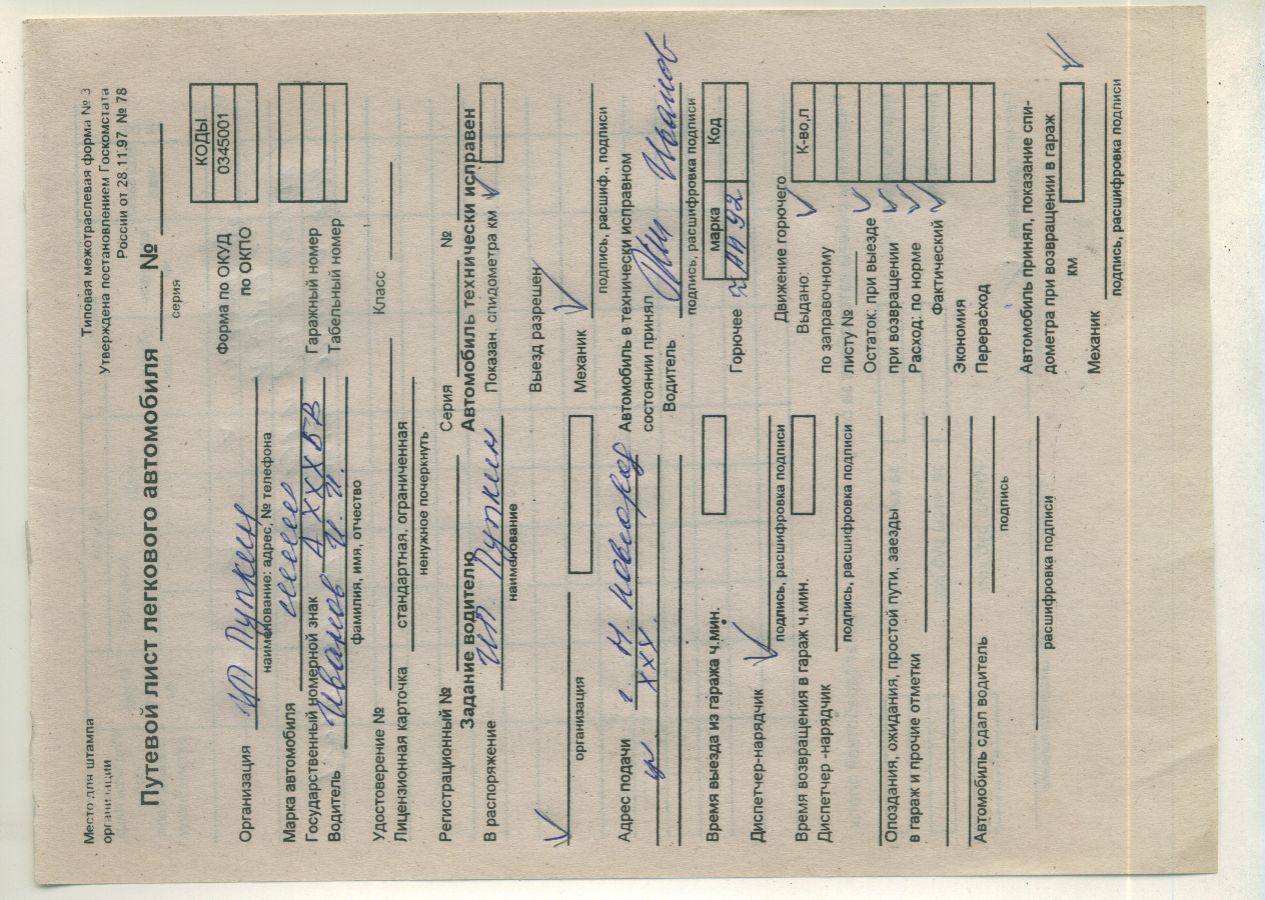 Место для штампа
организации
Типовая межотраслевая форма № 3
Утверждена постановлением Госкомстата
России от 28.11.97 № 78
Путевой лист легкового автомобиля №
серия
КОДЫ
Форма по ОКУД 0345001
Организация ИП Пупкин по ОКПО
наименование: адрес, № телефона
Марка автомобиля
Государственный номерной знак А ХХХ БВ Гаражный номер
Водитель Иванов И. И. Табельный номер
фамилия, имя, отчество
Удостоверение № Класс
Лицензионная карточка стандартная, ограниченная
ненужное почеркнуть
Регистрационный № Серия №
Задание водителю
В распоряжение ИП Пупкин
наименование
организация
Адрес подачи г. Н. Новгород
ул ХХУ.
Время выезда из гаража ч.мин.
Диспетчер-нарядчик
подпись, расшифровка подписи
Время возвращения в гараж ч.мин.
Диспетчер -нарядчик
подпись, расшифровка подписи
Опоздания, ожидания, простой пути, заезды
в гараж и прочие отметки
Автомобиль сдал водитель
подпись
расшифровка подписи
Автомобиль технически исправен
Показан. спидометра км
Выезд разрешен
Механик
подпись, расшиф., подписи
Автомобиль в технически исправном
состоянии принял
Водитель Иванов
подпись, расшифровка подписи
Горючее марка Код
АИ 92
Движение горючего
Выдано: К-во,л
по заправочному
листу №
Остаток: при выезде
при возвращении
Расход: по норме
Фактический
Экономия
Перерасход
Автомобиль принял, показание спи-
дометра при возвращении в гараж
км
Механик
подпись, расшифровка подписи